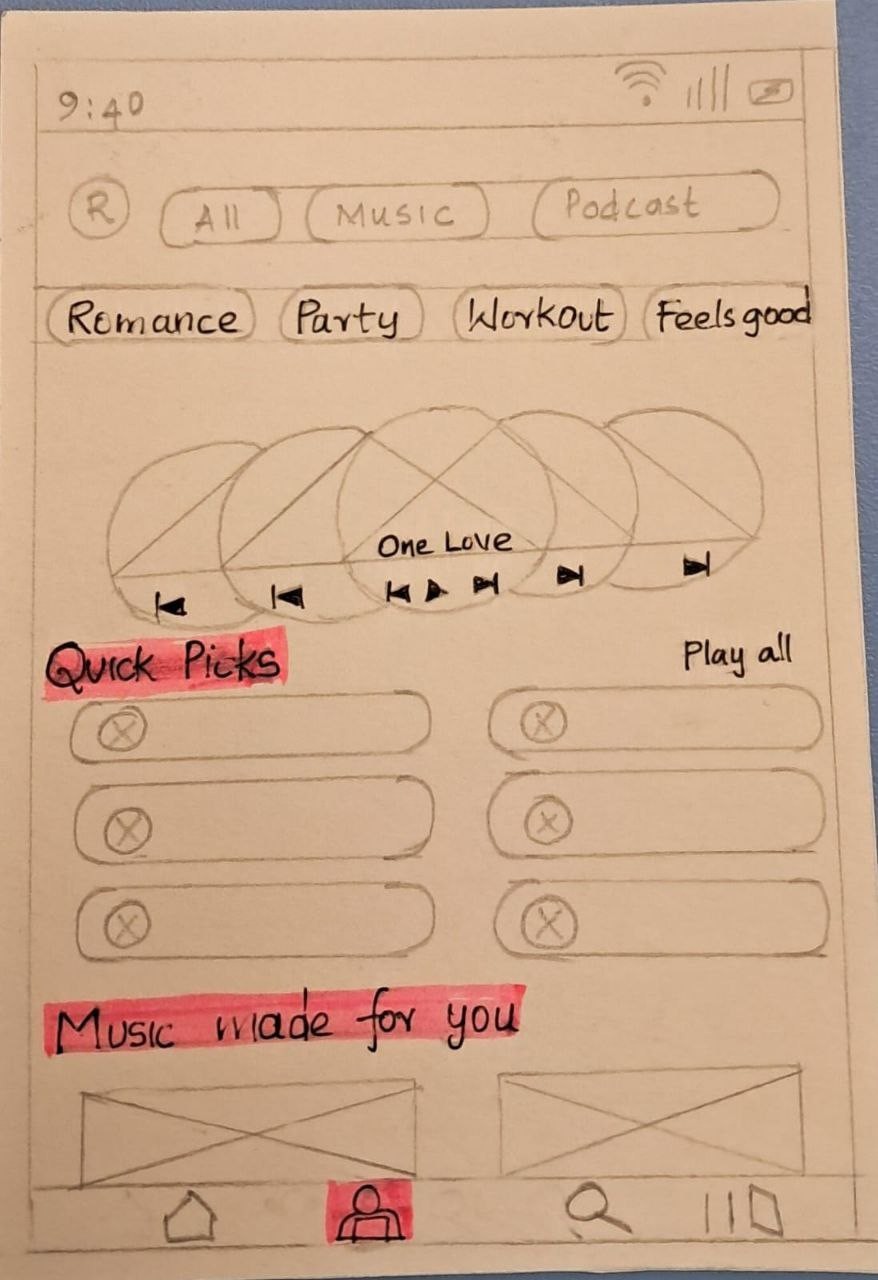 9:40
R All Music Podcast
Romance Party Workout Feels good
One Love
Quick Picks Play all
Music made for you